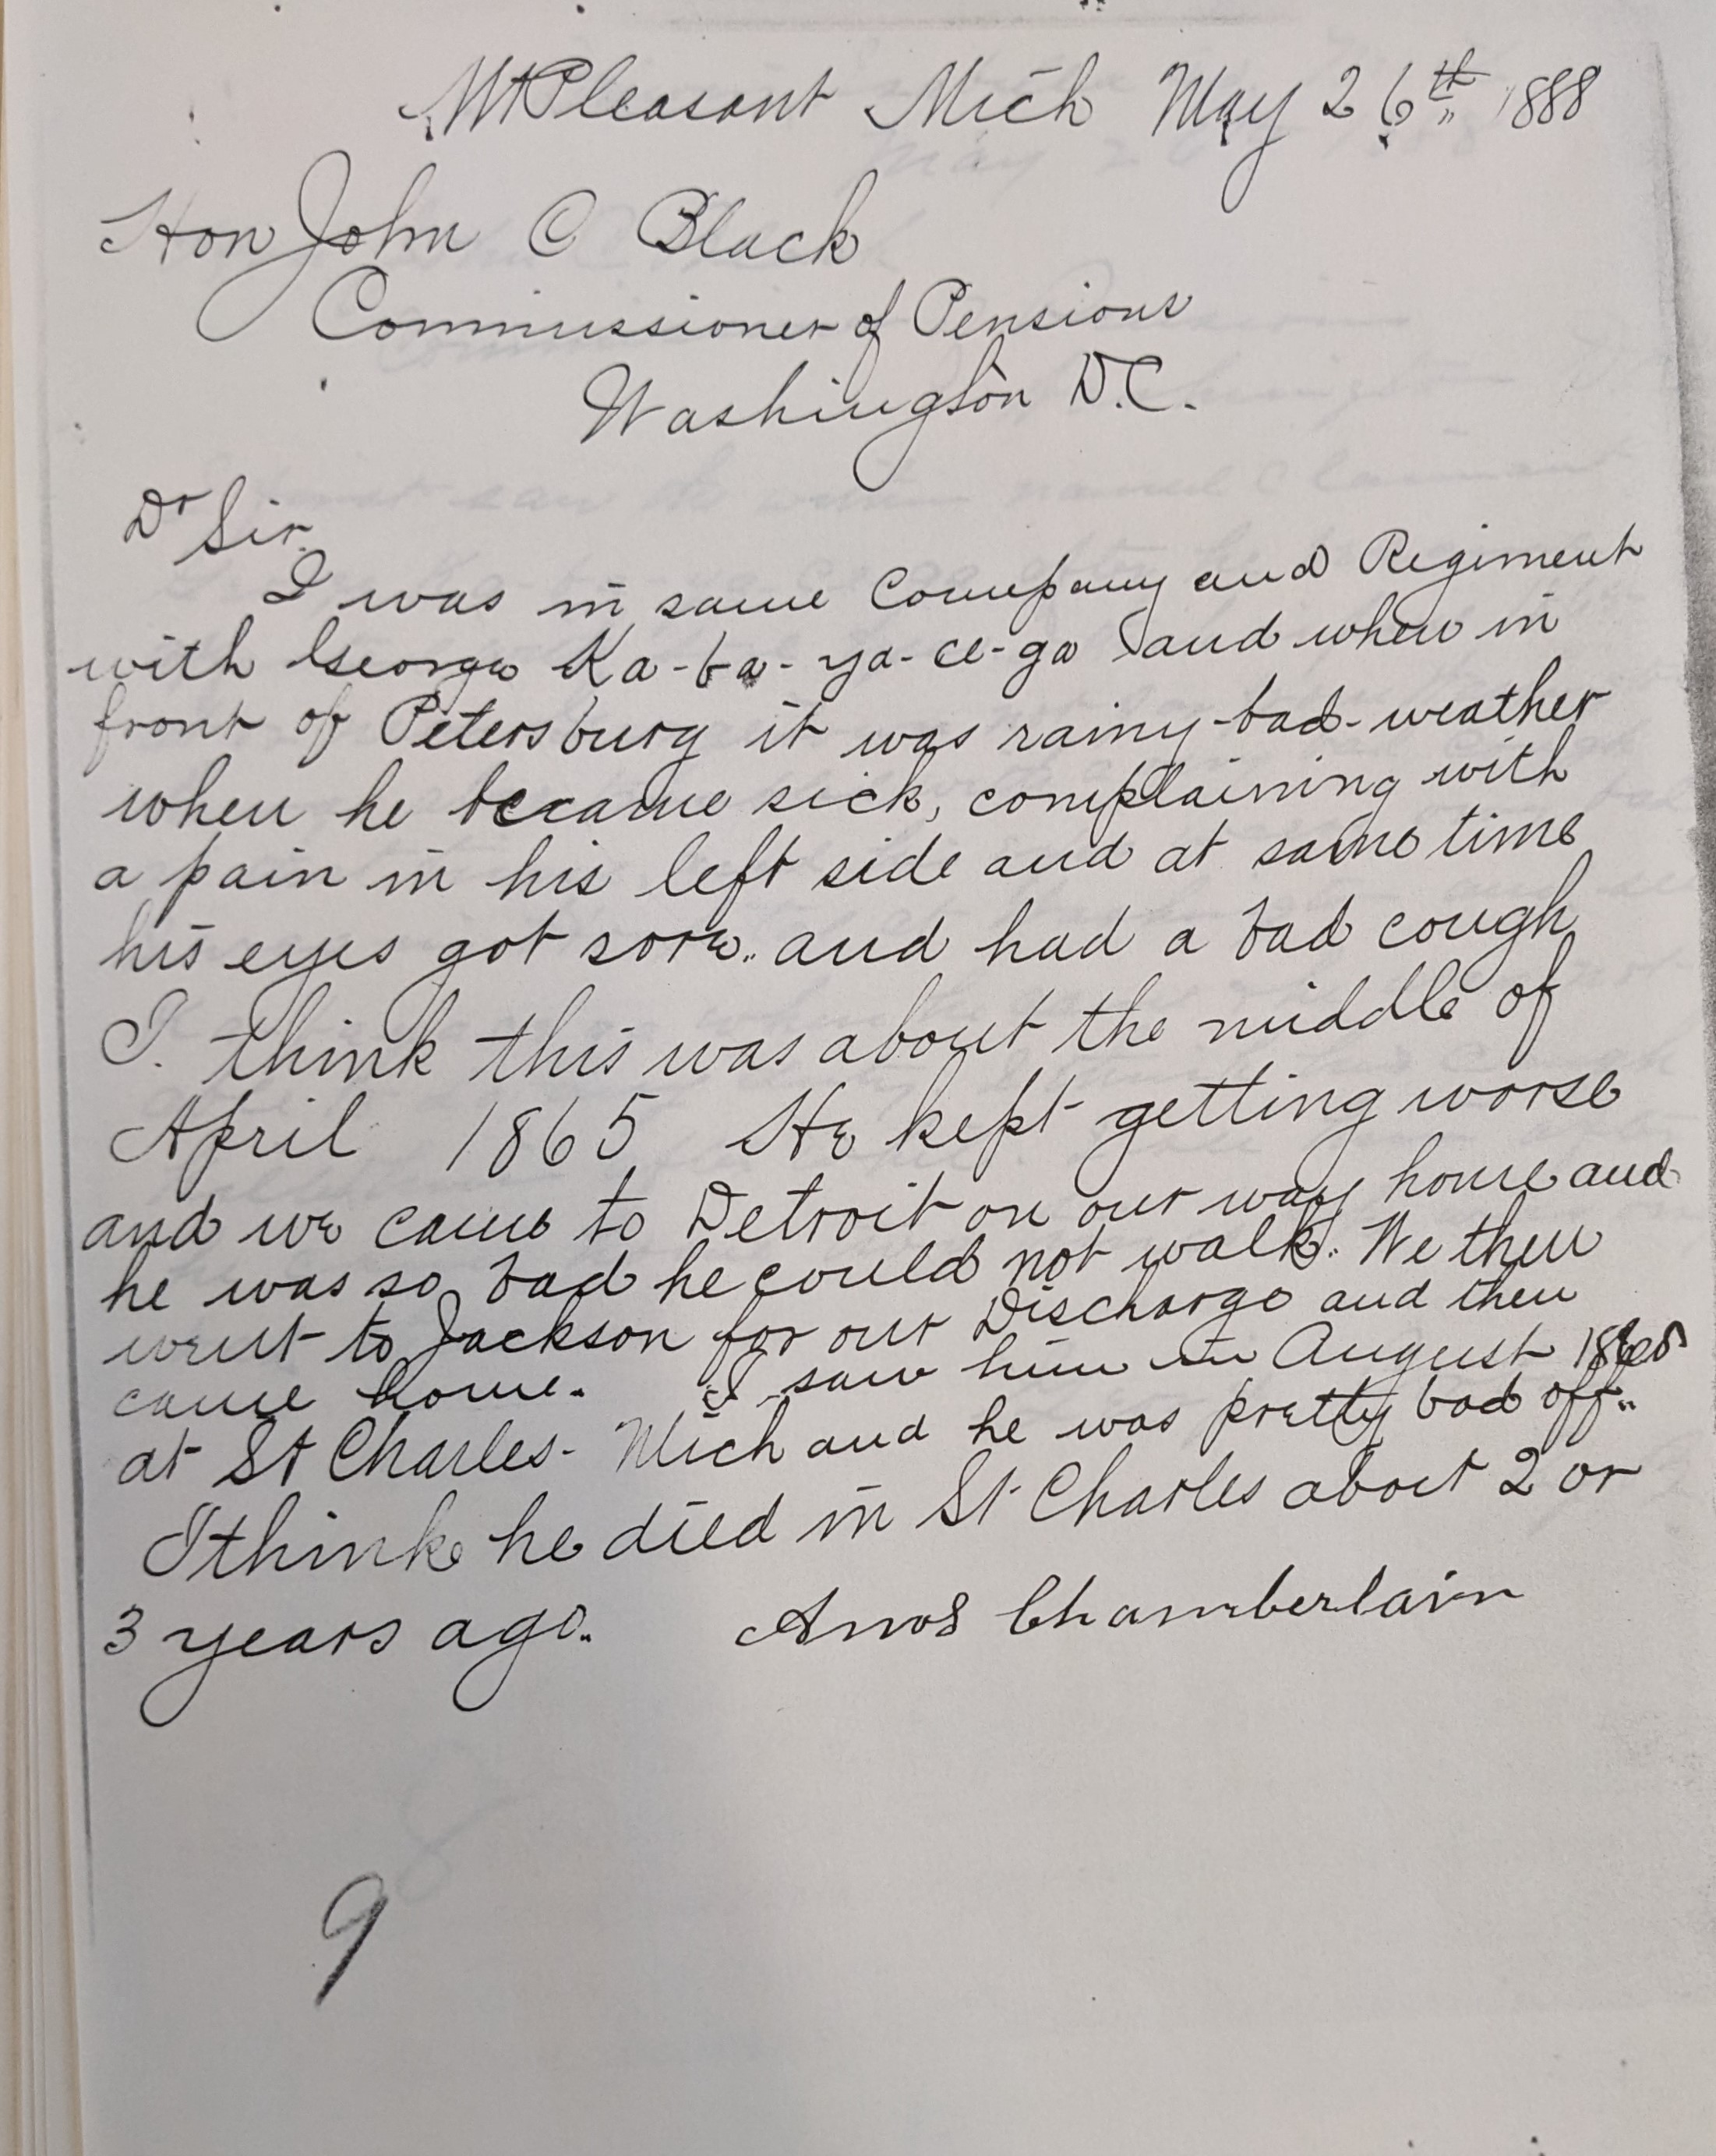 Mt Pleasant Mich May 26th 1888
Hon John C Black
Commissioner of Pensions
Washington D.C.
Dr Sir.
I was in same Company and Regiment
with George Ka-ba-ya-ce-ga and when in
front of Petersburg it was rainy-bad-weather
when he became sick, complaining with
a pain in his left side and at same time
his eyes got sore.. and had a bad cough
I. think this was about the middle of
April 1865 He kept getting worse
and we came to Detroit on our way home and
he was so bad he could not walk.. We then
went to Jackson for our Discharge and then
came home. I saw him in August 1865
at St Charles- Mich and he was pretty bad off..
I think he died in St Charles about 2 or
3 years ago.. Amos Chamberlain
9